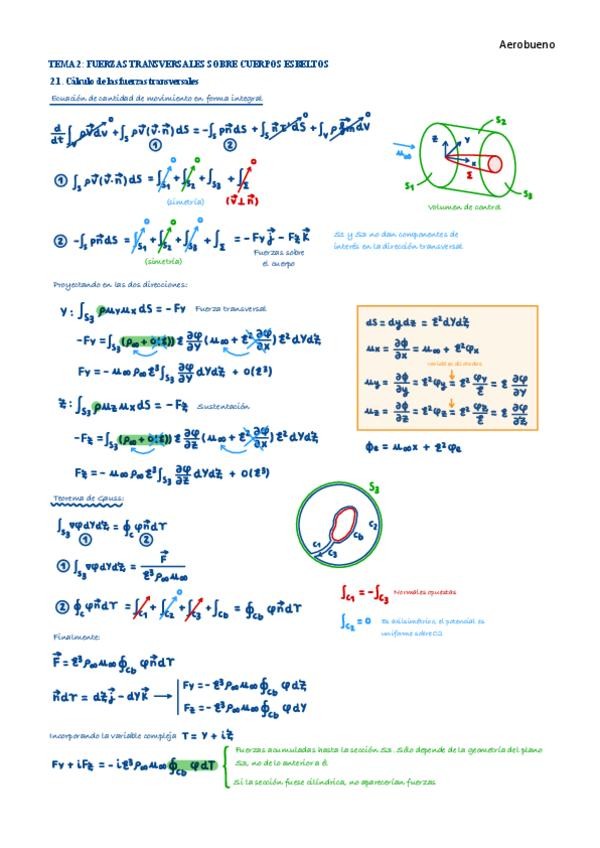 Aerobueno
TEMA 2: FUERZAS TRANSVERSALES SOBRE CUERPOS ESBELTOS
2.1. Cálculo de las fuerzas transversales
Ecuación de cantidad de movimiento en forma integral
d/dt ∫v ρv⃗dv + ∫s ρv⃗(v⃗·n⃗)dS = -∫s pn⃗dS + ∫s n⃗τ⃗'dS + ∫v ρf⃗m dv
① ②
① ∫s ρv⃗(v⃗·n⃗)dS = ∫S1 + ∫S2 + ∫S3 + ∫Σ
(simetría) (v⃗⊥n⃗)
S2
z y x
u∞
S1 Σ S3
Volumen de control
② -∫s pn⃗dS = ∫S1 + ∫S2 + ∫S3 + ∫Σ = -Fy j⃗ - Fz k⃗
(simetría)
Fuerzas sobre
el cuerpo
S1 y S3 no dan componentes de
interés en la dirección transversal
Proyectando en las dos direcciones:
y: ∫S3 ρuy ux dS = -Fy Fuerza transversal
-Fy = ∫S3 (ρ∞ + o(ε)) ε ∂φ/∂Y (u∞ + ε² ∂φ/∂x) ε² dYdZ
Fy = -u∞ρ∞ε³ ∫S3 ∂φ/∂Y dYdZ + o(ε³)
z: ∫S3 ρuz ux dS = -Fz Sustentación
-Fz = ∫S3 (ρ∞ + o(ε)) ε ∂φ/∂Z (u∞ + ε² ∂φ/∂x) ε² dYdZ
Fz = -u∞ρ∞ε³ ∫S3 ∂φ/∂Z dYdZ + o(ε³)
dS = dydz = ε²dYdZ
ux = ∂ϕ/∂x = u∞ + ε²φx
variables dilatadas
uy = ∂ϕ/∂y = ε²φy = ε² φY/ε = ε ∂φ/∂Y
uz = ∂ϕ/∂z = ε²φz = ε² φZ/ε = ε ∂φ/∂Z
ϕe = u∞x + ε²φe
Teorema de Gauss:
∫S3 ∇φdYdZ = ∮c φn⃗dτ
① ②
① ∫S3 ∇φdYdZ = F⃗ / ε³ρ∞u∞
② ∮c φn⃗dτ = ∫C1 + ∫C2 + ∫C3 + ∫Cb = ∮Cb φn⃗dτ
S3
C1 C3 Cb C2
∫C1 = -∫C3 Normales opuestas
∫C2 = 0 Es axilsimétrico, el potencial es
uniforme sobre C2
Finalmente:
F⃗ = ε³ρ∞u∞ ∮Cb φn⃗dτ
n⃗dτ = dZj⃗ - dYk⃗ → Fy = -ε³ρ∞u∞ ∮Cb φdZ
Fz = -ε³ρ∞u∞ ∮Cb φdY
Incorporando la variable compleja T = Y + iZ
Fy + iFz = -iε³ρ∞u∞ ∮Cb φdT
Fuerzas acumuladas hasta la sección S3. Sólo depende de la geometría del plano
S3, no de lo anterior a él
Si la sección fuese cilíndrica, no aparecerían fuerzas